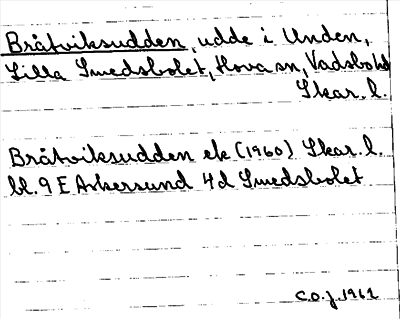 Bråtviksudden, udde i Unden,
Lilla Smedsbolet, Hova sn, Vadsbo hd
Skar. l.
Bråtviksudden ek (1960) Skar. l.
bl. 9 E Askersund 4d Smedsbolet
C.O.J. 1961